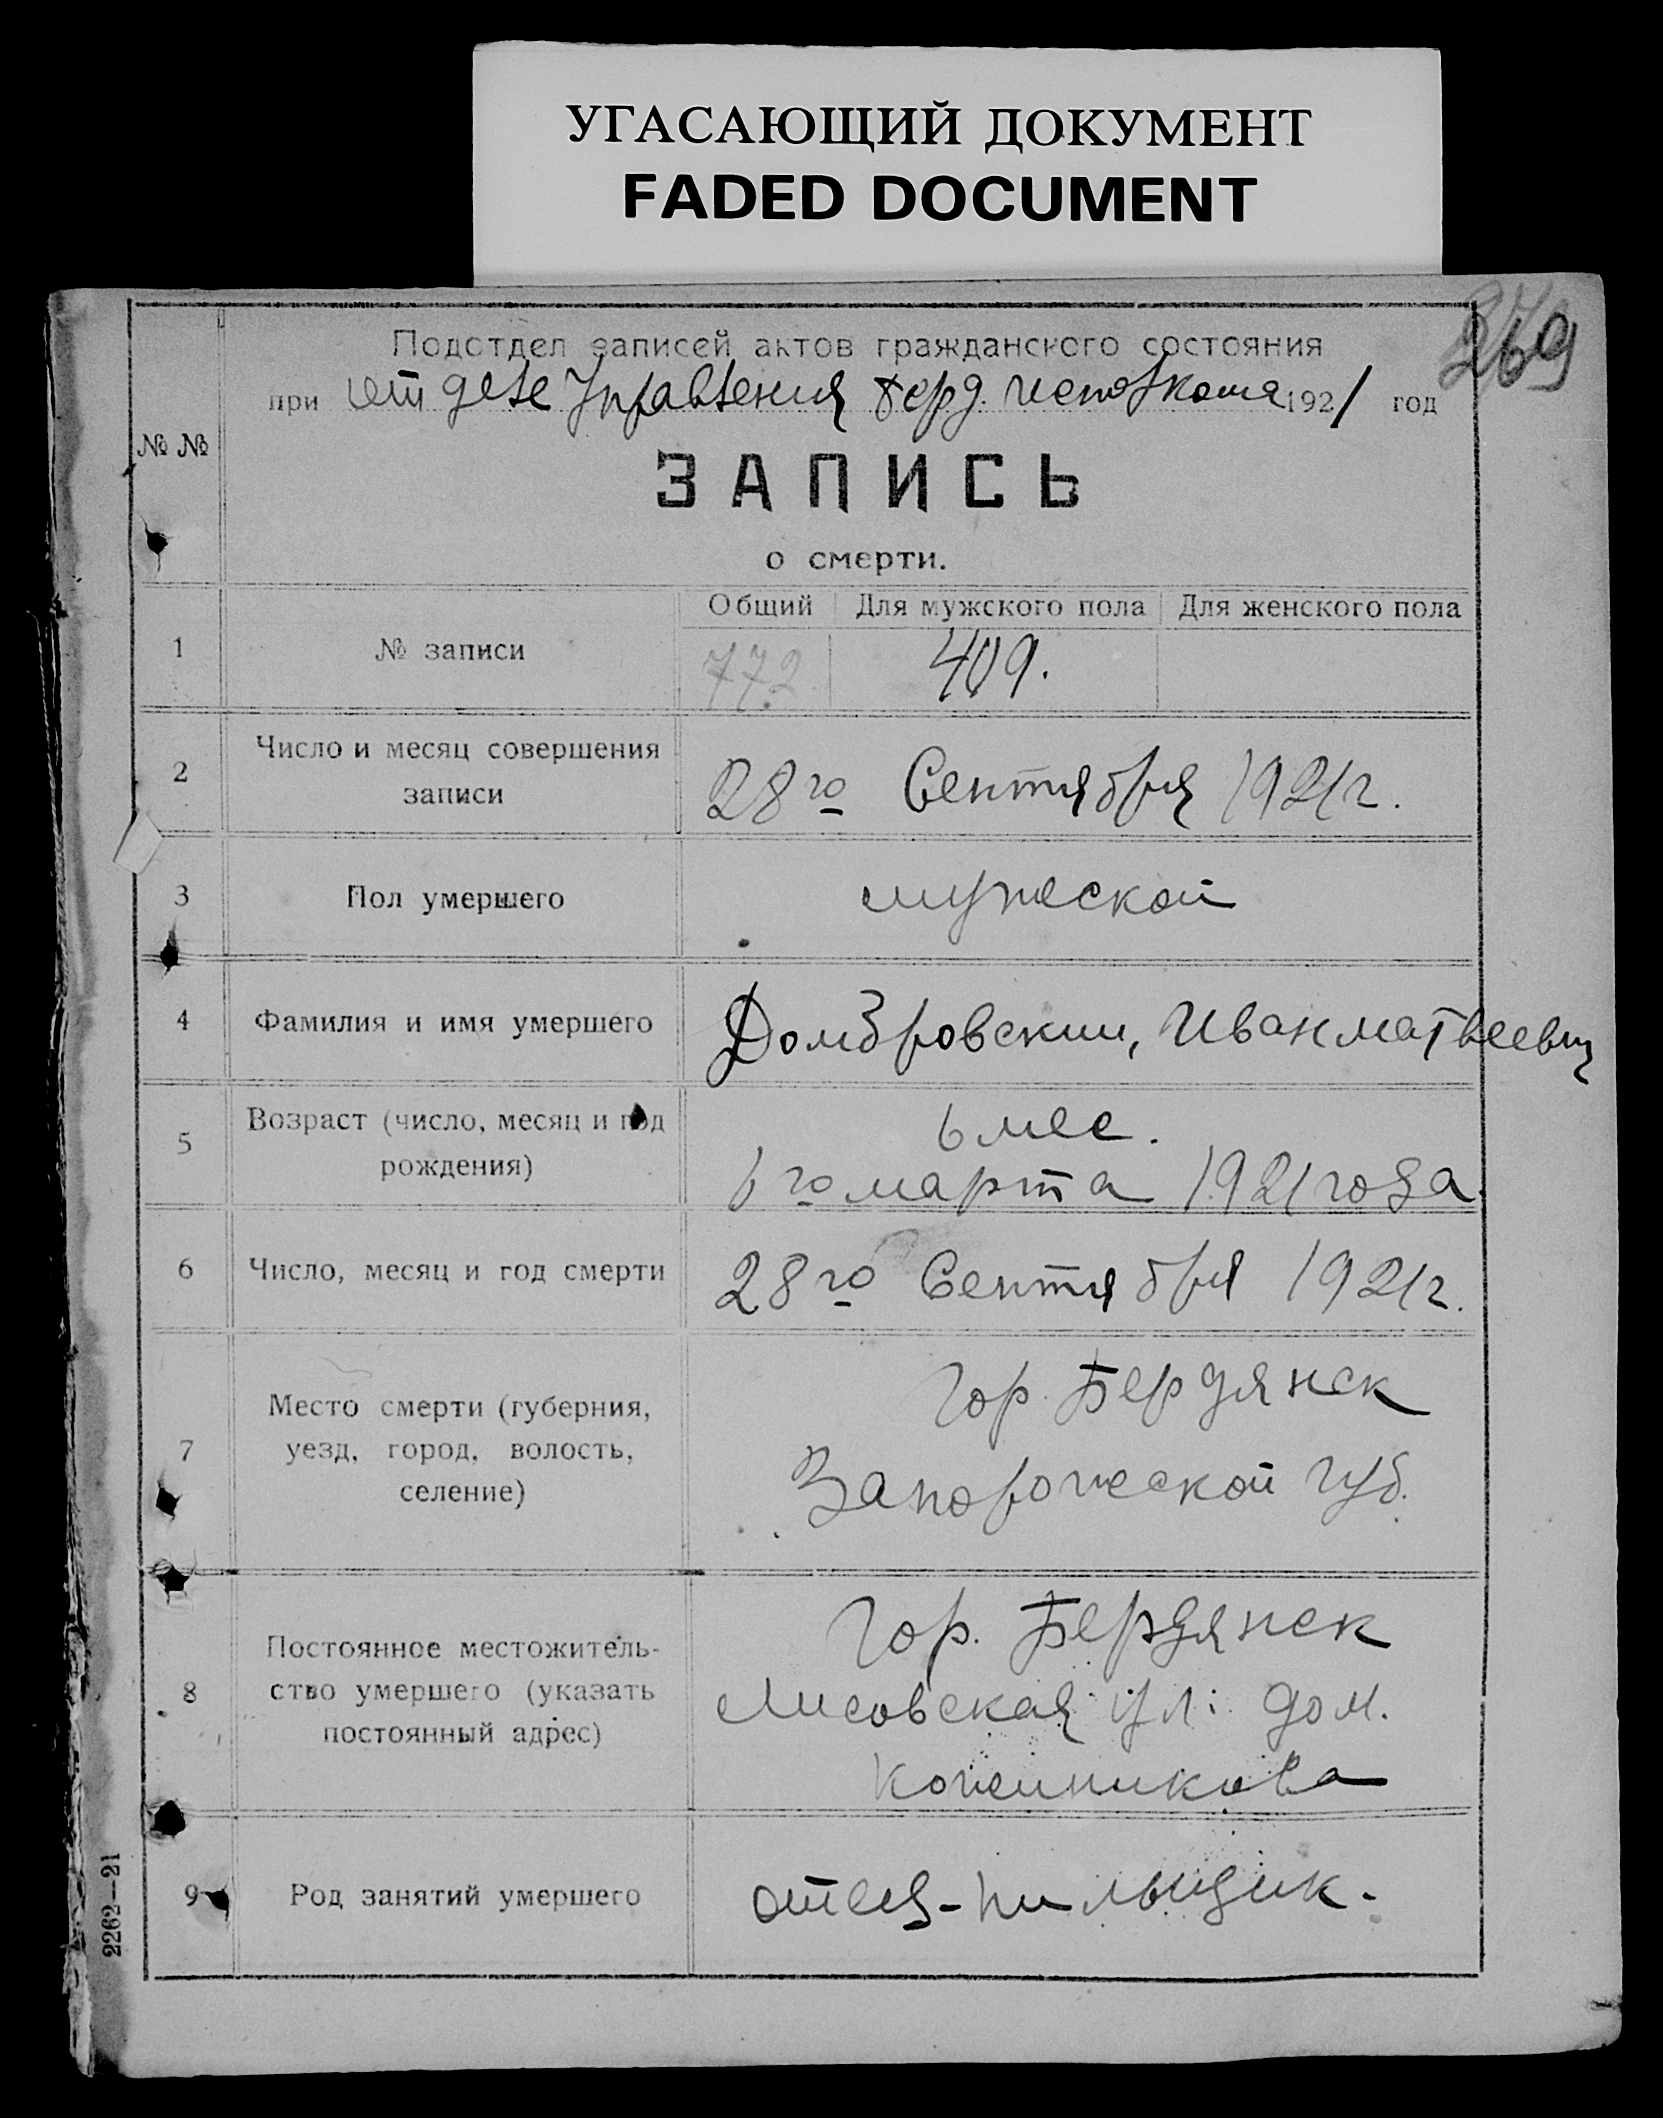 УГАСАЮЩИЙ ДОКУМЕНТ
FADED DOCUMENT
269
Подотдел записей актов гражданского состояния
при отделе Управления Берд. Исполкома 1921 год
№ №
ЗАПИСЬ
о смерти.
Общий Для мужского пола Для женского пола
1 № записи 772 409.
2 Число и месяц совершения
записи 28го Сентября 1921г.
3 Пол умершего мужской
4 Фамилия и имя умершего Домбровский, Иван Матвеевич
5 Возраст (число, месяц и год
рождения)
6 мес.
6го марта 1921 года
6 Число, месяц и год смерти 28го Сентября 1921г.
7 Место смерти (губерния,
уезд, город, волость,
селение)
Гор. Бердянск
Запорожской губ.
8 Постоянное местожитель-
ство умершего (указать
постоянный адрес)
Гор. Бердянск
Лисовская ул: дом.
9 Род занятий умершего отец-пильщик.
2262—21